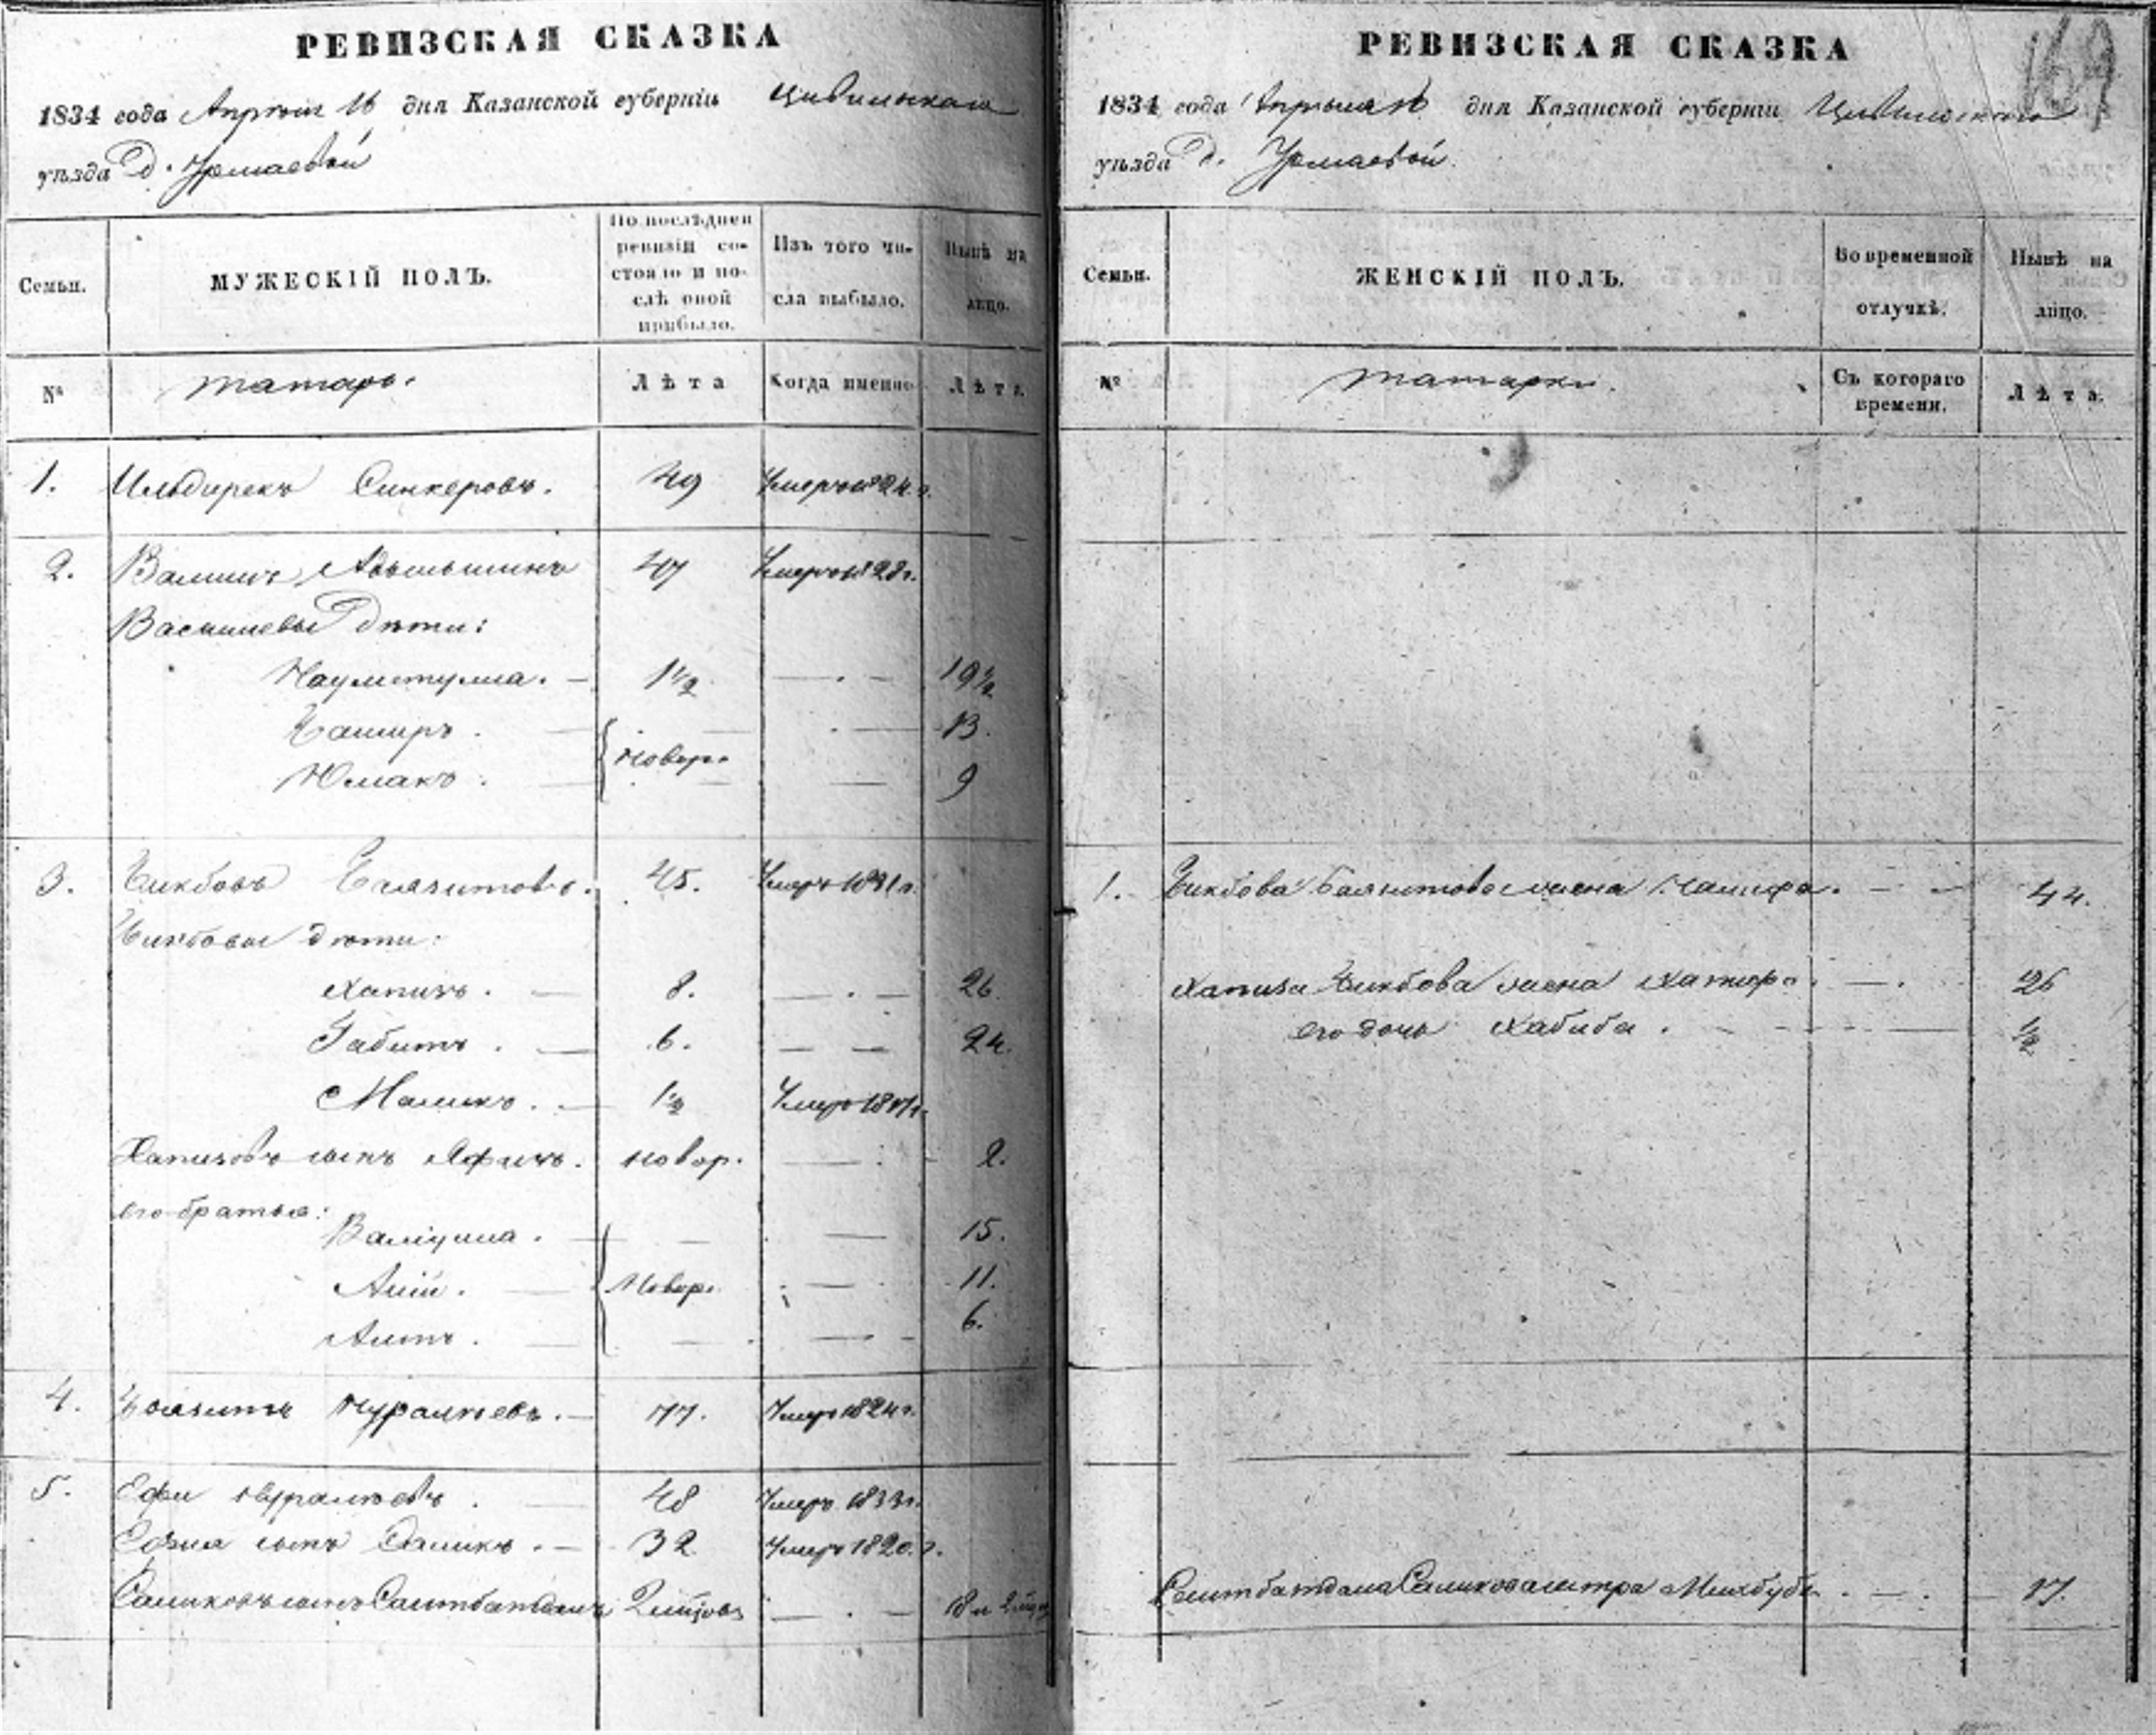 РЕВИЗСКАЯ СКАЗКА
1834 года Апрѣля 16 дня Казанской губерніи Цивильскаго
уѣзда Д. Урмаевой
Семьи.
МУЖЕСКІЙ ПОЛЪ.
По послѣдней ревизіи состояло и послѣ оной прибыло.
Изъ того числа выбыло.
Нынѣ на лицо.
№
татаръ.
Лѣта
Когда именно
Лѣта.
1. Ильдерекъ Синкеровъ. 49 Умеръ 1824 г.
2. 47 Умеръ 1828 г.
дѣти:
1½ — . — 19½
Баширъ . — . — 13.
Юмакъ . — — 9
Новор.
3. Бикбовъ Баязитовъ. 45. Умеръ 1831 г.
Бикбовы дѣти:
Хапизъ . — 8. — . — 26.
Габитъ . — 6. — — 24.
Маликъ . — 1½ Умеръ
Хапизовъ сынъ новор. — . 2.
его братья:
Валіулла . — — — 15.
Алій . — Новор. — 11.
Алитъ . — — — 6.
4. Баязитъ Нуралѣевъ. — 77. Умеръ 1824 г.
5. Ефи Нуралѣевъ . 48 Умеръ 1833 г.
сынъ Саликъ . — 32 Умеръ 1820. г.
Саликовъ сынъ Саитбатталъ — . —
РЕВИЗСКАЯ СКАЗКА
169
1834 года Апрѣля 16 дня Казанской губерніи Цивильскаго
уѣзда Д. Урмаевой.
Семьи.
ЖЕНСКІЙ ПОЛЪ.
Во временной отлучкѣ.
Нынѣ на лицо.
№
татарки.
Съ котораго времени.
Лѣта.
1. Бикбова Баязитова жена . — — 44.
Хапиза Бикбова жена — . 26
его дочь Хабиба . — ½
Саитбаттала Саликова — . — 17.